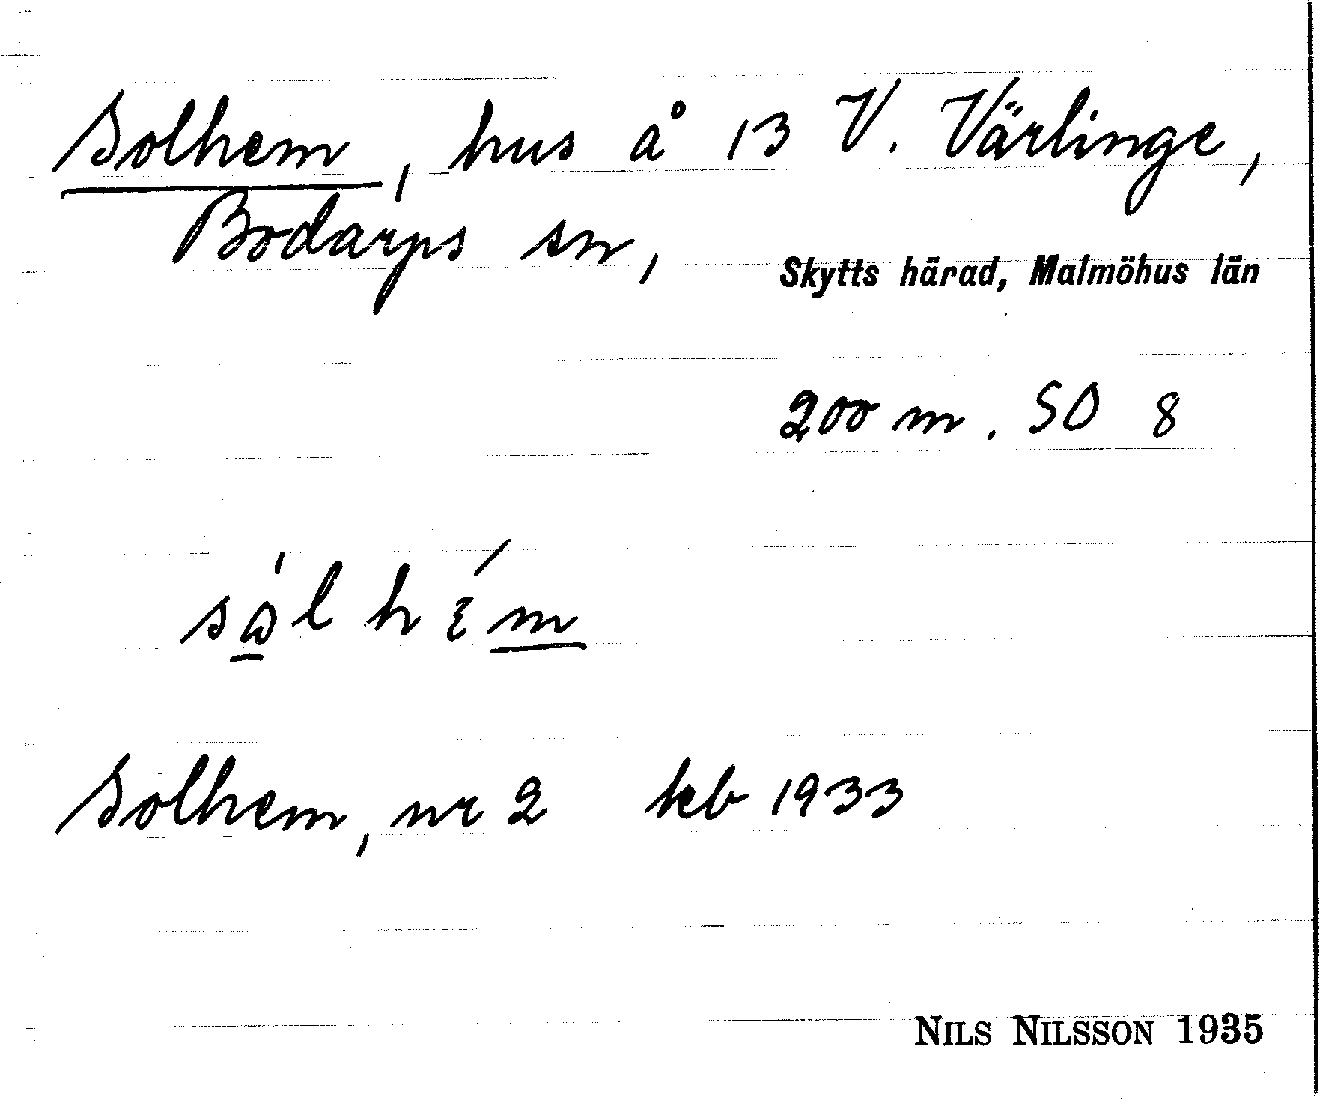 Solhem, hus å 13 V. Värlinge,
Bodarps sn,
Skytts härad, Malmöhus län
200 m. SO 8
Solhem, nr 2 kb 1933
NILS NILSSON 1935